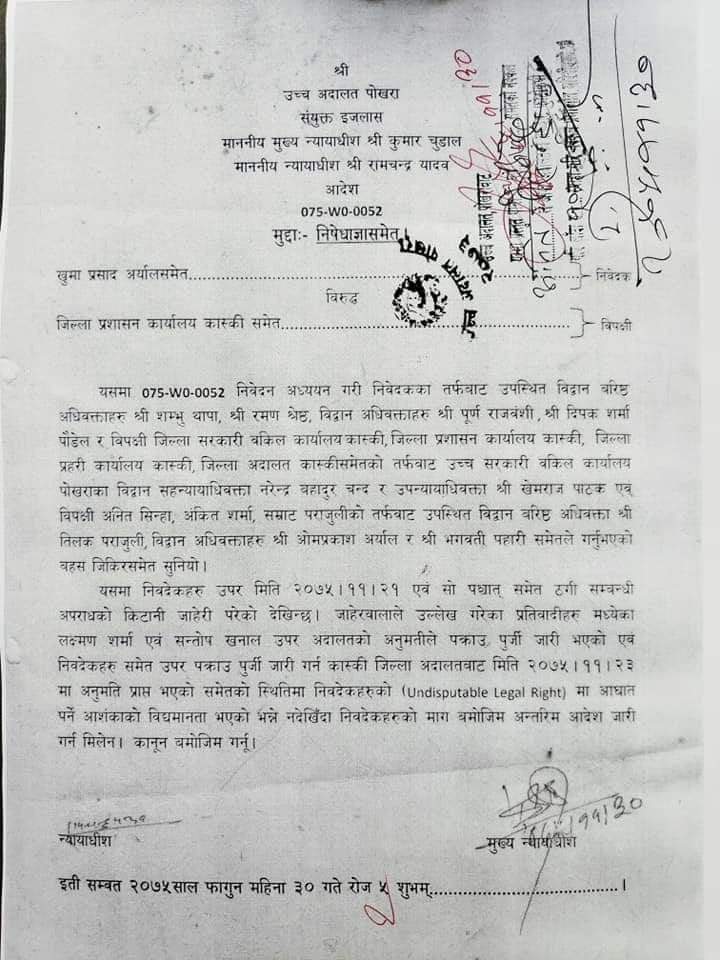 श्री
उच्च अदालत पोखरा
संयुक्त इजलास
माननीय मुख्य न्यायाधीश श्री कुमार चुडाल
माननीय न्यायाधीश श्री रामचन्द्र यादव
आदेश
075-W0-0052
मुद्दाः- निषेधाज्ञासमेत
खुमा प्रसाद अर्यालसमेत.......................................................................... निवेदक
विरुद्ध
जिल्ला प्रशासन कार्यालय कास्की समेत.......................................................... विपक्षी
यसमा 075-W0-0052 निवेदन अध्ययन गरी निवेदकका तर्फवाट उपस्थित विद्वान बरिष्ठ
अधिवक्ताहरु श्री शम्भु थापा, श्री रमण श्रेष्ठ, विद्वान अधिवक्ताहरु श्री पूर्ण राजवंशी, श्री दिपक शर्मा
पौडेल र विपक्षी जिल्ला सरकारी वकिल कार्यालय कास्की, जिल्ला प्रशासन कार्यालय कास्की, जिल्ला
प्रहरी कार्यालय कास्की, जिल्ला अदालत कास्कीसमेतको तर्फवाट उच्च सरकारी वकिल कार्यालय
पोखराका विद्वान सहन्यायाधिवक्ता नरेन्द्र बहादुर चन्द र उपन्यायाधिवक्ता श्री खेमराज पाठक एवं
विपक्षी अनित सिन्हा, अंकित शर्मा, सम्राट पराजुलीको तर्फवाट उपस्थित विद्वान बरिष्ठ अधिवक्ता श्री
तिलक पराजुली, विद्वान अधिवक्ताहरु श्री ओमप्रकाश अर्याल र श्री भगवती पहारी समेतले गर्नुभएको
वहस जिकिरसमेत सुनियो।
यसमा निवदेकहरु उपर मिति २०७५।११।२१ एवं सो पश्चात् समेत ठगी सम्वन्धी
अपराधको किटानी जाहेरी परेको देखिन्छ। जाहेरवालाले उल्लेख गरेका प्रतिवादीहरु मध्येका
लक्ष्मण शर्मा एवं सन्तोप खनाल उपर अदालतको अनुमतीले पक्राउ पुर्जी जारी भएको एवं
निवदेकहरु समेत उपर पक्राउ पुर्जी जारी गर्न कास्की जिल्ला अदालतवाट मिति २०७५।११।२३
मा अनुमति प्राप्त भएको समेतको स्थितिमा निवदेकहरुको (Undisputable Legal Right) मा आघात
पर्ने आशंकाको विद्यमानता भएको भन्ने नदेखिँदा निवदेकहरुको माग बमोजिम अन्तरिम आदेश जारी
गर्न मिलेन। कानून बमोजिम गर्नू।
न्यायाधीश
मुख्य न्यायाधीश
इती सम्वत २०७५साल फागुन महिना ३० गते रोज ५ शुभम्.......................................।